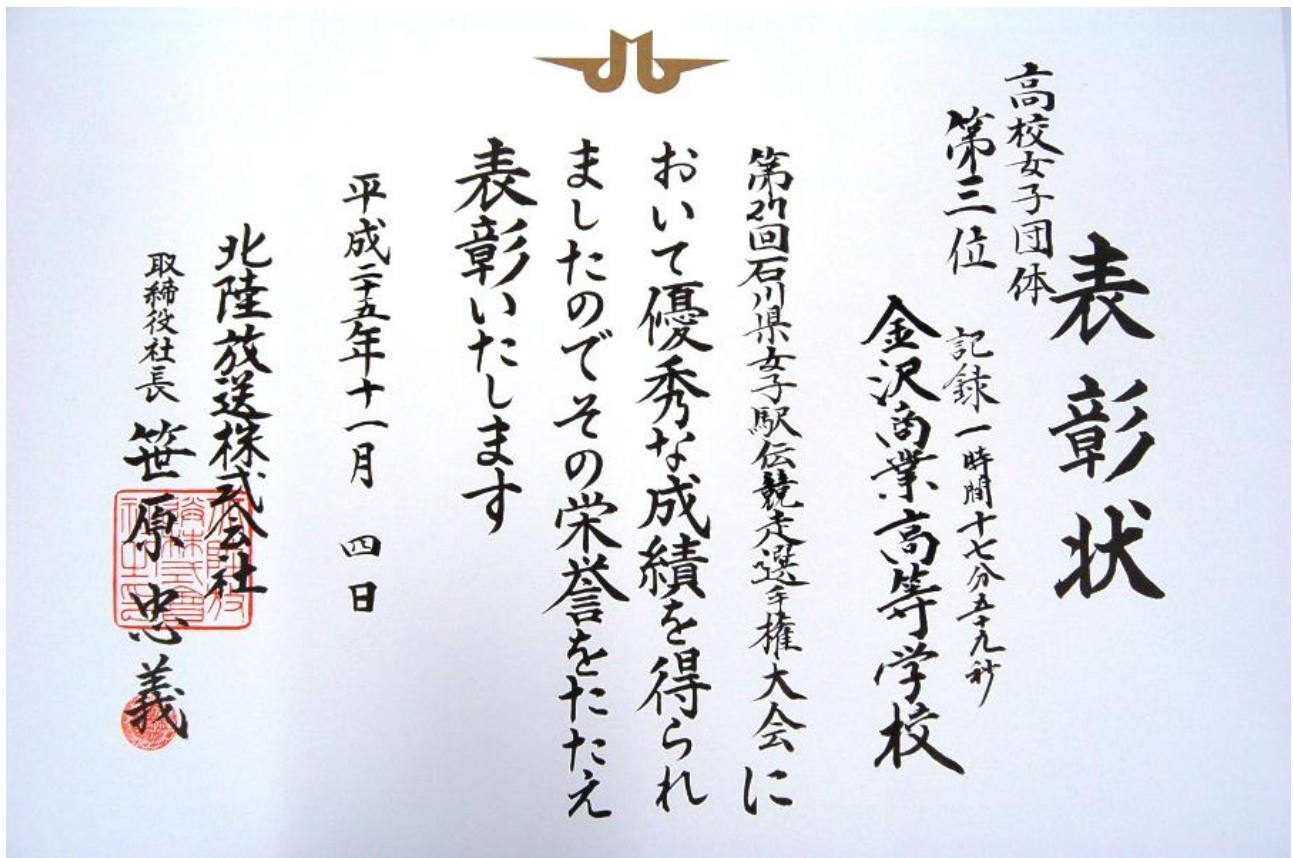 表彰状
高校女子団体
第三位
記録 一時間十七分五十九秒
金沢商業高等学校
第27回石川県女子駅伝競走選手権大会に
おいて優秀な成績を得られ
ましたのでその栄誉をたたえ
表彰いたします
平成二十五年十一月 四日
北陸放送株式会社
取締役社長 笹原忠義